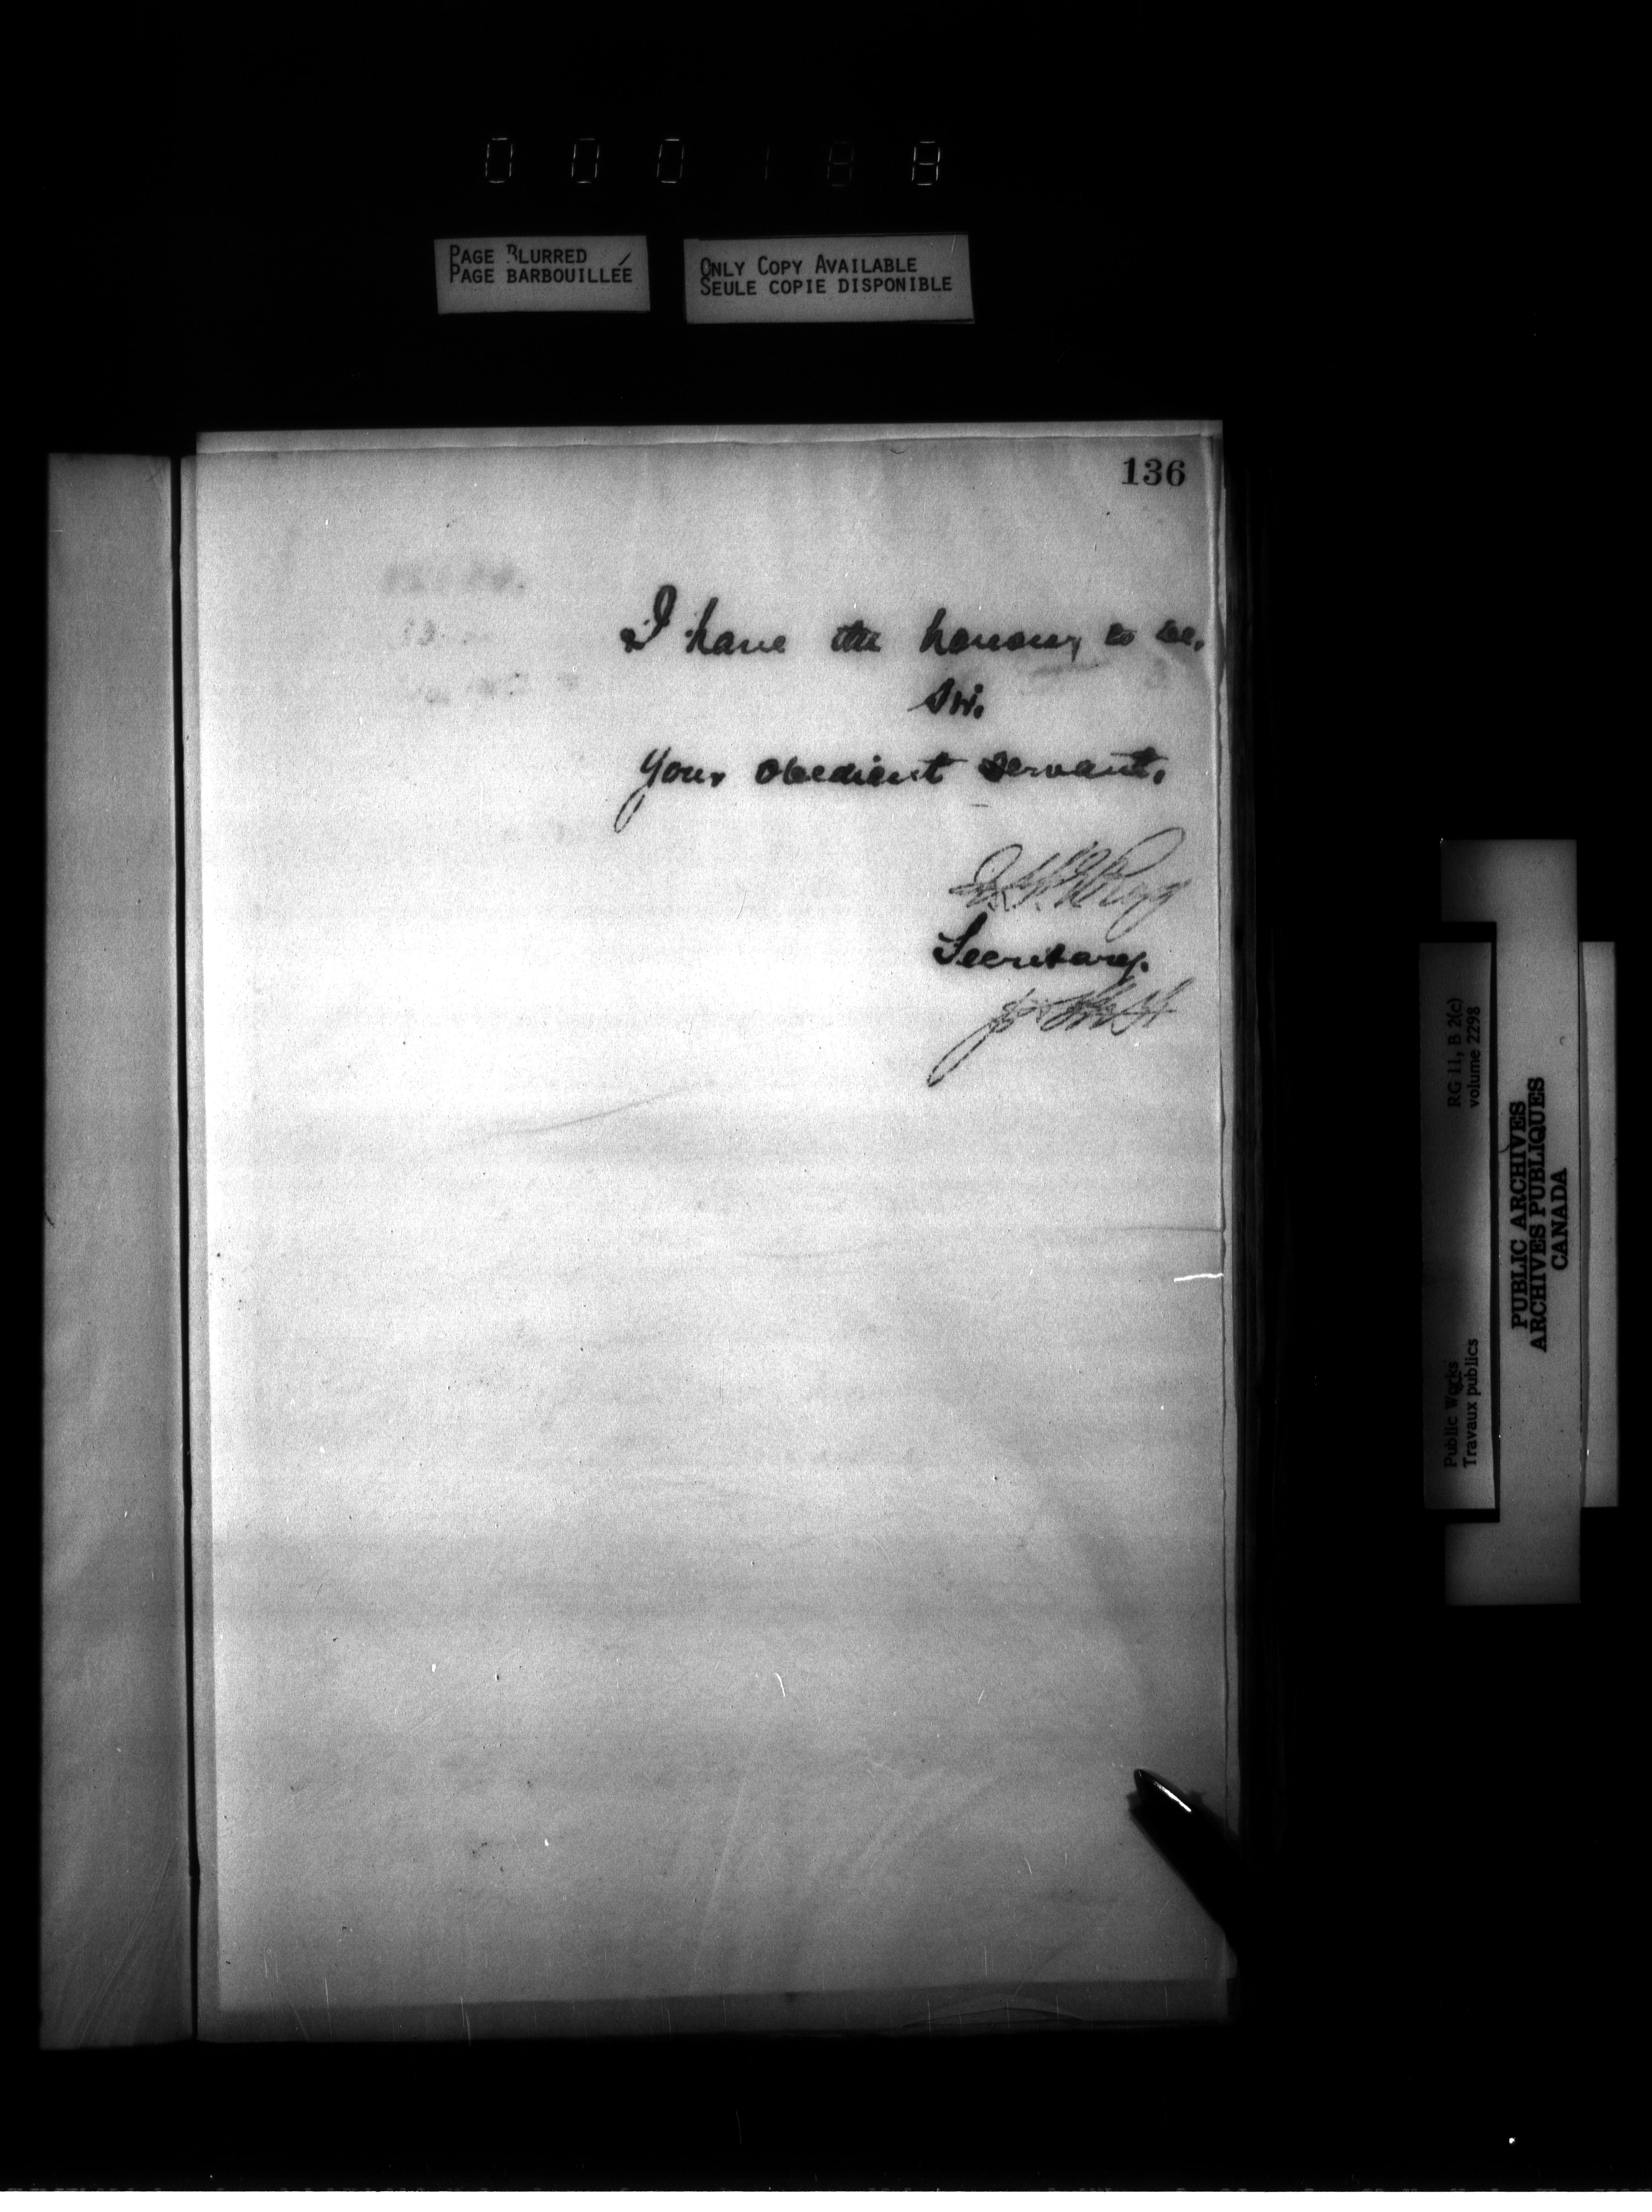 000188
PAGE BLURRED
PAGE BARBOUILLÉE
ONLY COPY AVAILABLE
SEULE COPIE DISPONIBLE
136
I have the honour, to be.
Sir.
Your obedient servant.
Secretary.
Public Works
Travaux publics
RG 11, B 2(c)
volume 2298
PUBLIC ARCHIVES
ARCHIVES PUBLIQUES
CANADA